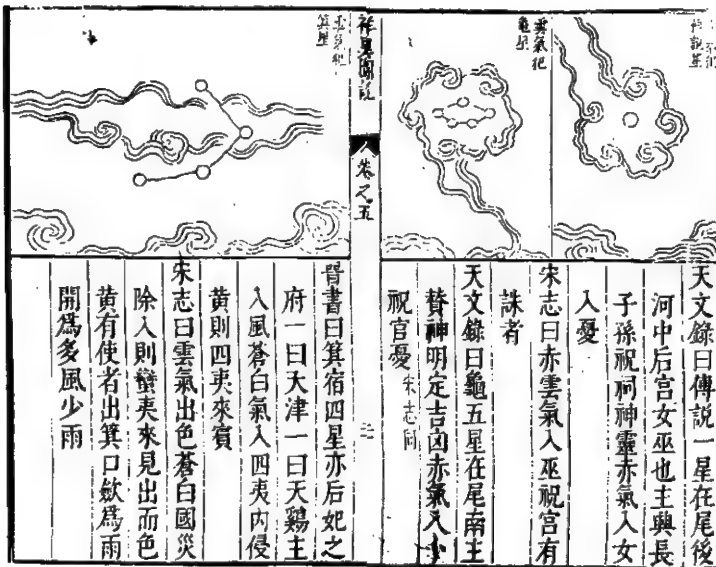 傅說星
雲氣犯
龜星
天文錄曰傅說一星在尾後
河中后宫女巫也主興長
子孫祝祠神靈赤氣入女
人憂
宋志曰赤雲氣入巫祝官有
誅者
天文錄曰龜五星在尾南主
賛神明定吉凶赤氣入卜
祝官憂 宋志同
祥異圖說
卷之五
二
雲氣犯
箕星
晉書曰箕宿四星亦后妃之
府一曰天津一曰天鷄主
八風蒼白氣入四夷内侵
黄則四夷來賓
宋志曰雲氣出色蒼白國災
除入則蠻夷來見出而色
黄有使者出箕口斂爲雨
開爲多風少雨